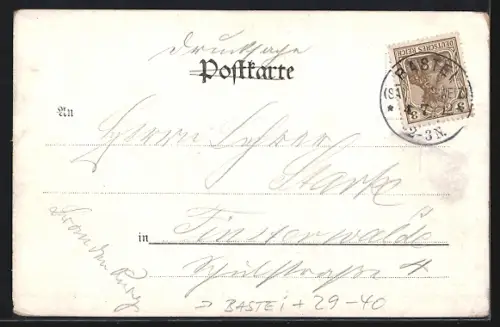 Drucksache
Postkarte
DEUTSCHES REICH
BASTEI
2-3N.
An
Herrn Lehrer
Starke
in Finsterwalde
Schulstraße 4
Brandenburg
BASTEI + 29-40